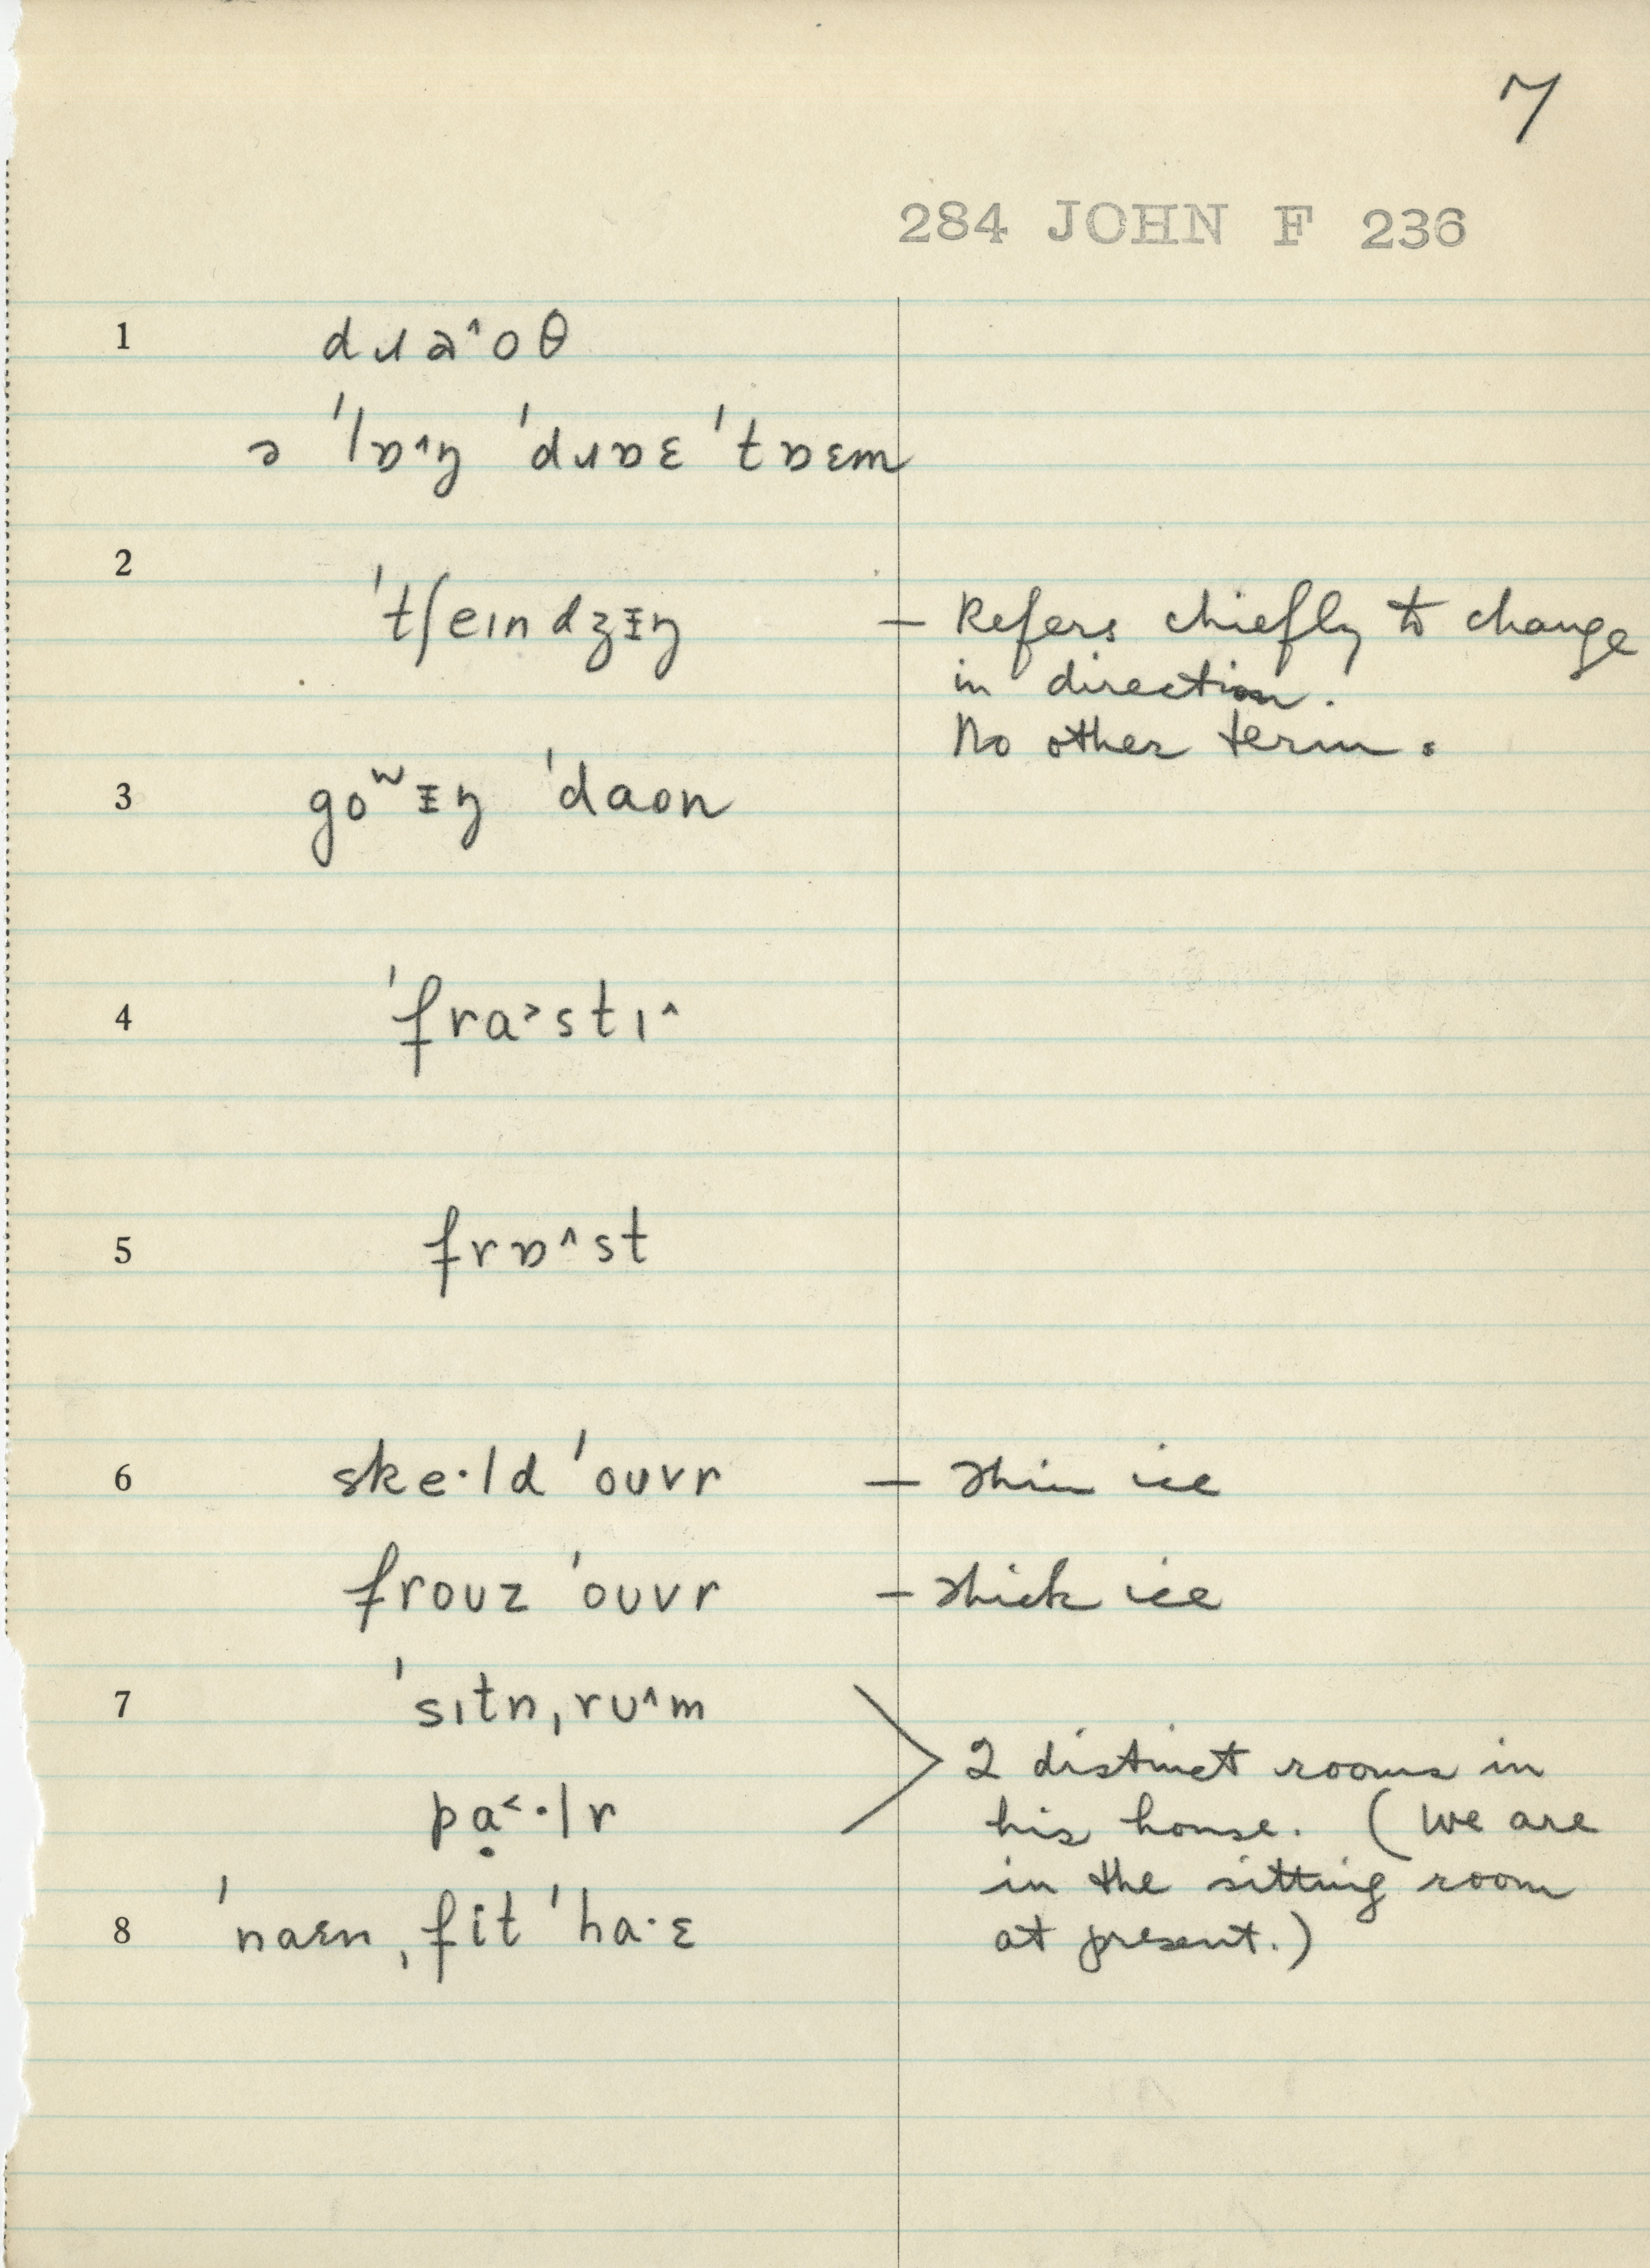 7
284 JOHN F 236
1 dɹa^oθ
ə ˈlɒ^ŋ ˈdɹɒɛ ˈtɒɛm
2 ˈtʃeɪndʒɪŋ — Refers chiefly to change
in direction.
No other term.
3 goʷɪŋ ˈdaon
4 ˈfra˃stɪ^
5 frɒ^st
6 ske·ld ˈouvr — thin ice
frouz ˈouvr — thick ice
7 ˈsɪtnˌrʊ^m
pạ˂·lr
2 distinct rooms in
his house. (We are
in the sitting room
at present.)
8 ˈnaɛnˌfit ˈha·ɛ